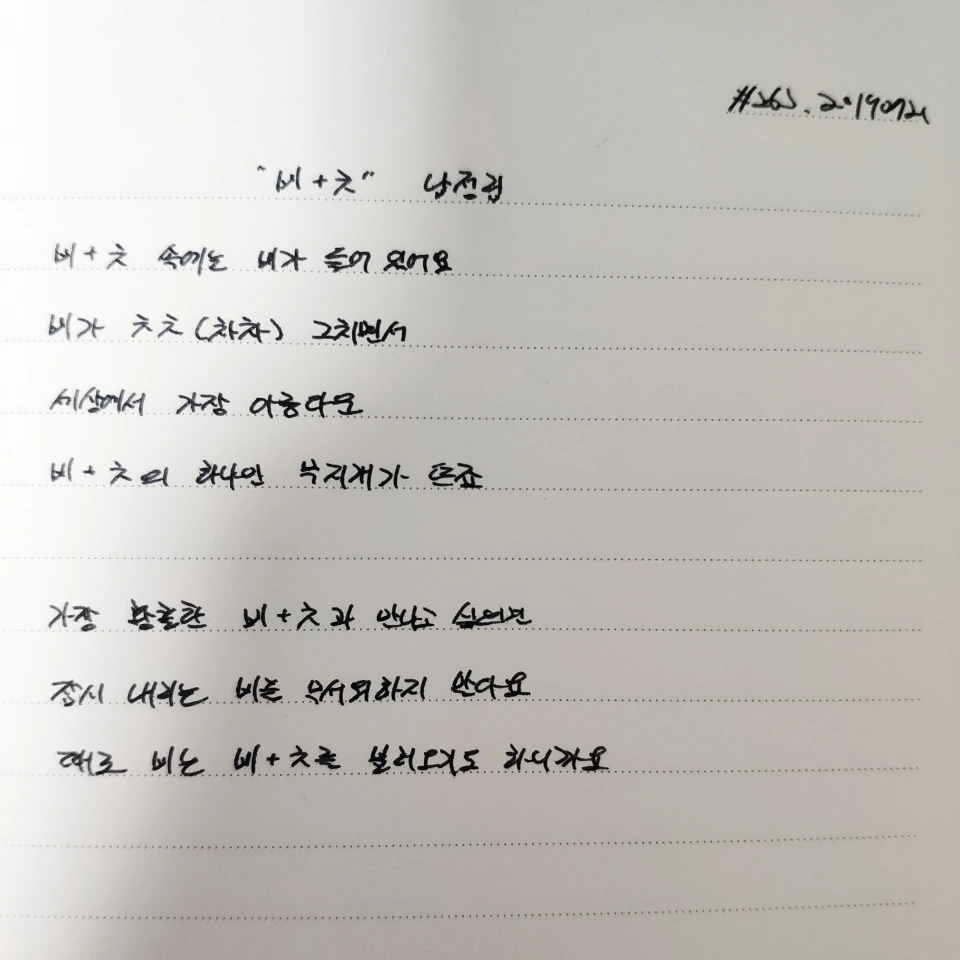 #262. 20190921
"비+ㅊ" 남정림
비+ㅊ 속에는 비가 들어 있어요
비가 ㅊㅊ(차차) 그치면서
세상에서 가장 아름다운
비+ㅊ의 하나인 무지개가 뜨죠
가장 황홀한 비+ㅊ과 만나고 싶다면
잠시 내리는 비를 무서워하지 말아요
때로 비는 비+ㅊ를 불러오기도 하니까요